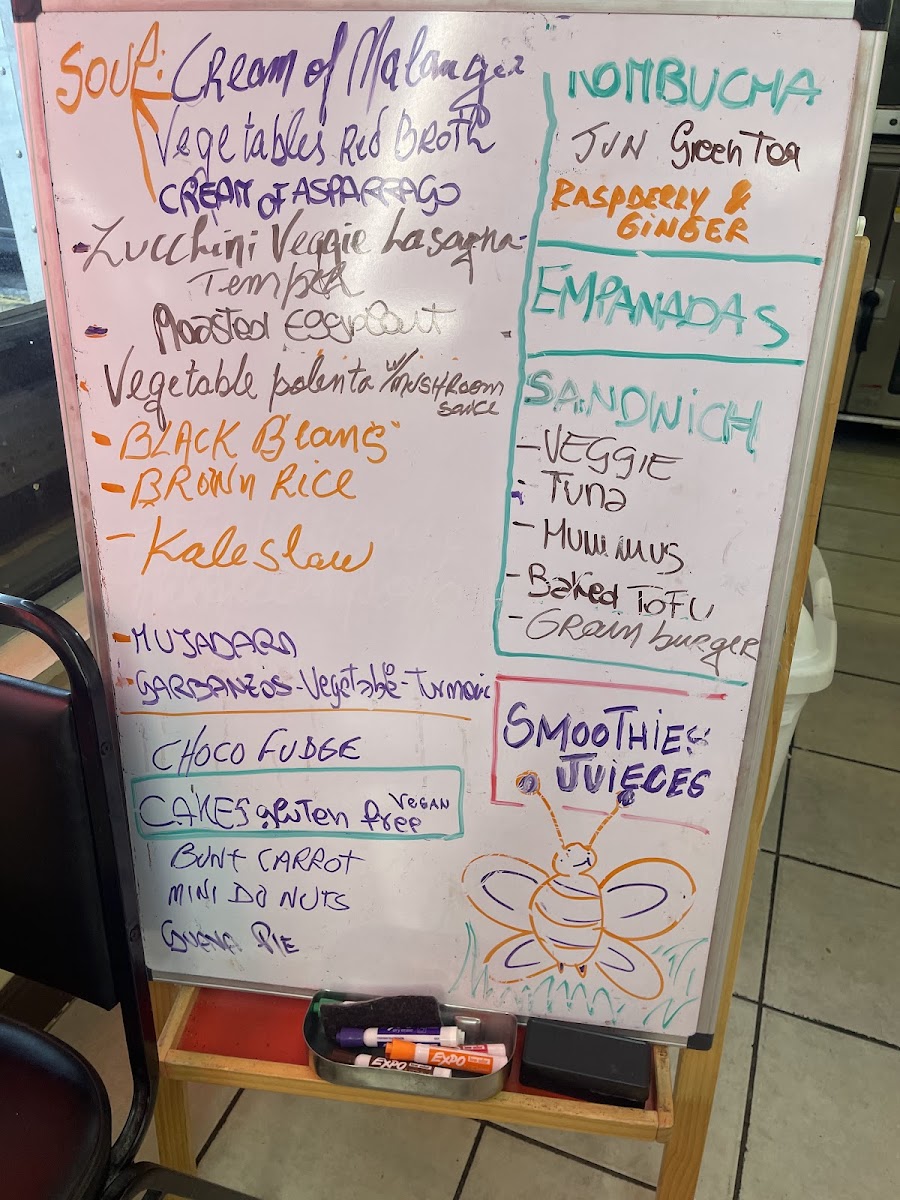 SOUP: Cream of Malanga
Vegetables Red Broth
CREAM of ASPARRAGO
- Zucchini Veggie Lasagna
Tempeh
- Roasted Eggplant
- Vegetable polenta w/ MUSHROOM
SAUCE
- BLACK Beans
- BROWN RICE
- Kaleslaw
- MUJADARA
- GARBANZOS - Vegetable - Turmeric
CHOCO FUDGE
CAKES gluten free VEGAN
BUNT CARROT
MINI DO NUTS
GUAVA PIE
KOMBUCHA
JUN Green Tea
RASPBERRY &
GINGER
EMPANADAS
SANDWICH
- VEGGIE
- Tuna
- Hummus
- Baked TOFU
- Grain burger
SMOOTHIES
JUIECES
EXPO
EXPO